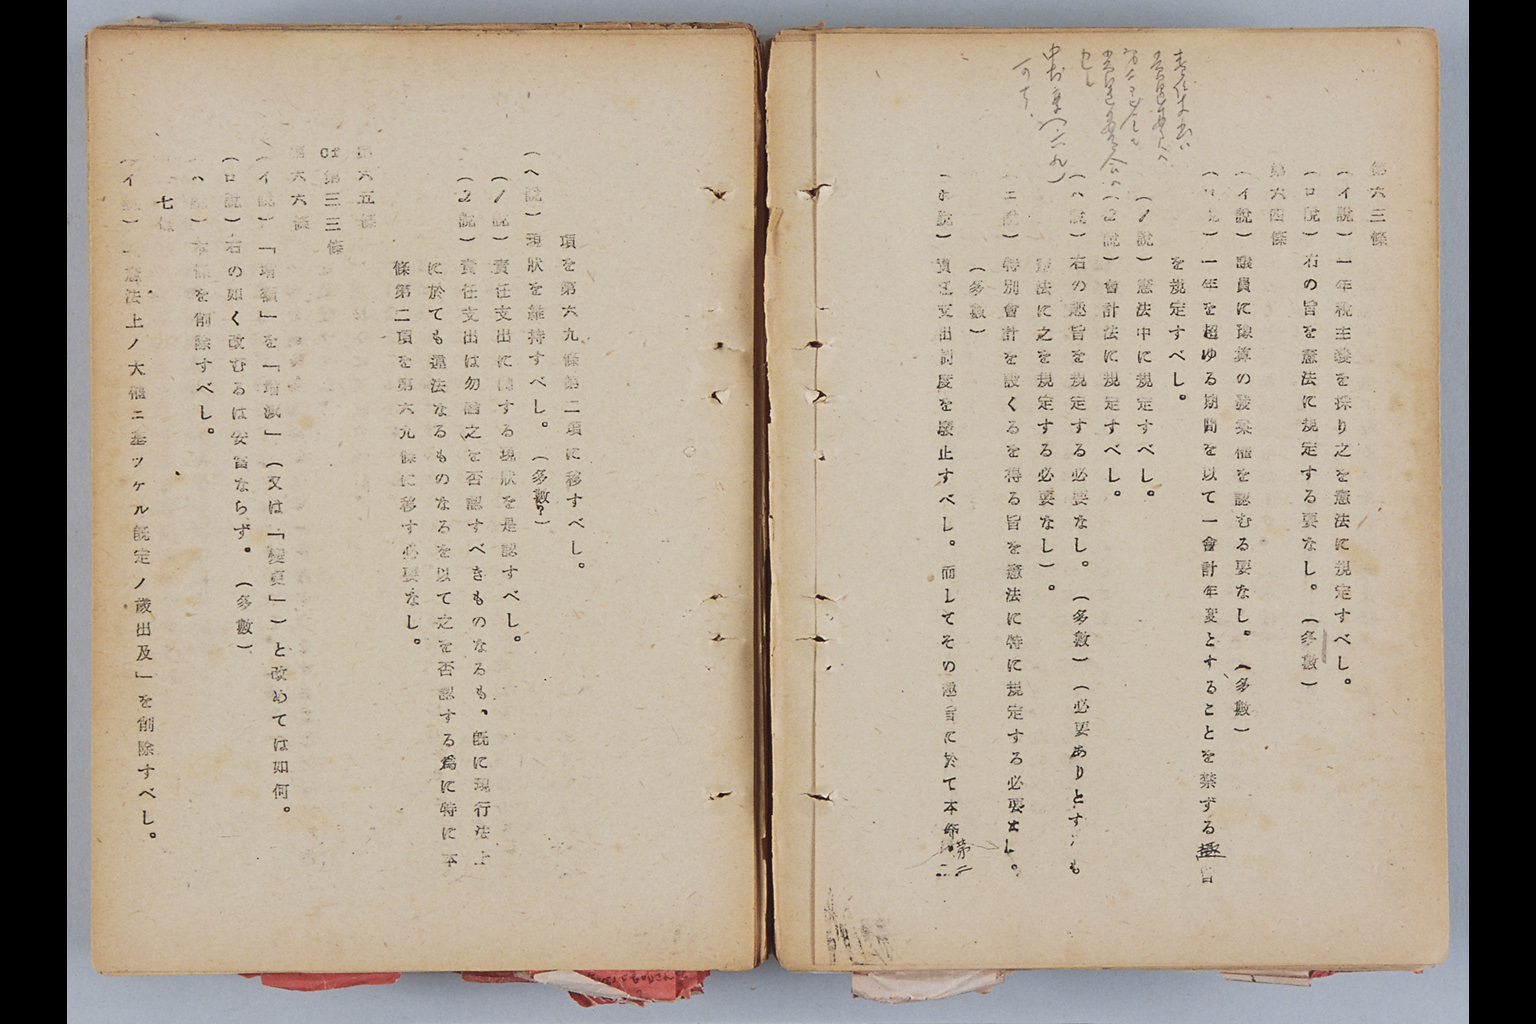 第六三條
(イ說)一年稅主義を採り之を憲法に規定すべし。
(ロ說)右の旨を憲法に規定する要なし。(多數)
第六四條
(イ說)議員に豫算の發案權を認むる要なし。(多數)
一年を超ゆる期間を以て一會計年度とすることを禁ずる 旨
を規定すべし。
(1說)憲法中に規定すべし。
(2說)會計法に規定すべし。
(ハ說)右の趣旨を規定する必要なし。(多數)(必要ありとするも
憲法に之を規定する必要なし)。
(ニ說)特別會計を設くるを得る旨を憲法に特に規定する必要なし。
(多數)
(ホ說)責任支出制度を廢止すべし。而してその趣旨に於て本條第二
項を第六九條第二項に移すべし。
(ヘ說)現狀を維持すべし。(多數?)
(1說)責任支出に關する現狀を是認すべし。
(2說)責任支出は勿論之を否認すべきものなるも、旣に現行法上
に於ても違法なるものなるを以て之を否認する爲に特に本
條第二項を第六九條に移す必要なし。
第六五條
cf第三三條
第六六條
(イ說)「增額」を「增減」(又は「變更」)と改めては如何。
(ロ說)右の如く改むるは妥當ならず。(多數)
(ハ說)本條を削除すべし。
七條
(イ說)「憲法上ノ大權ニ基ツケル旣定ノ歲出及」を削除すべし。